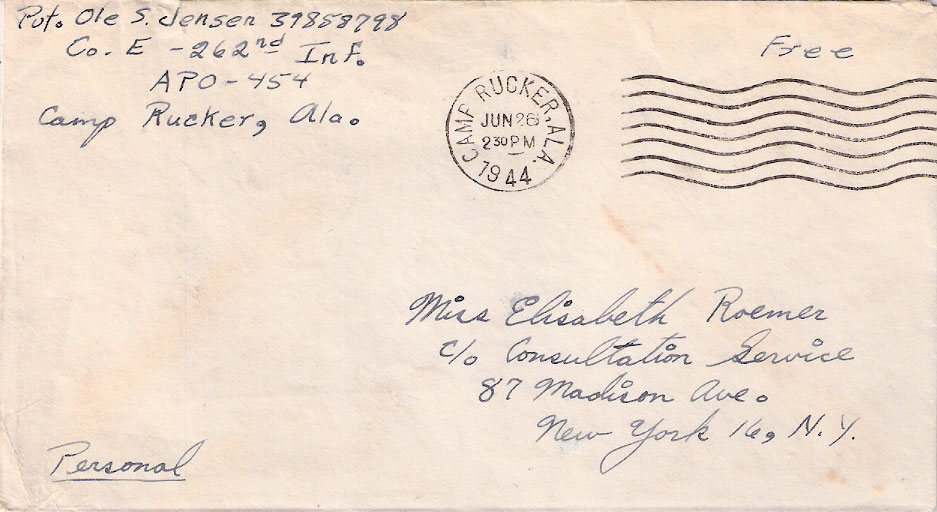 Pvt. Ole S. Jensen 39858798
Co. E - 262nd Inf.
APO - 454
Camp Rucker, Ala.
Free
CAMP RUCKER, ALA.
JUN 26
2 30 PM
1944
Miss Elisabeth Roemer
c/o Consultation Service
87 Madison Ave.
New York 16, N.Y.
Personal